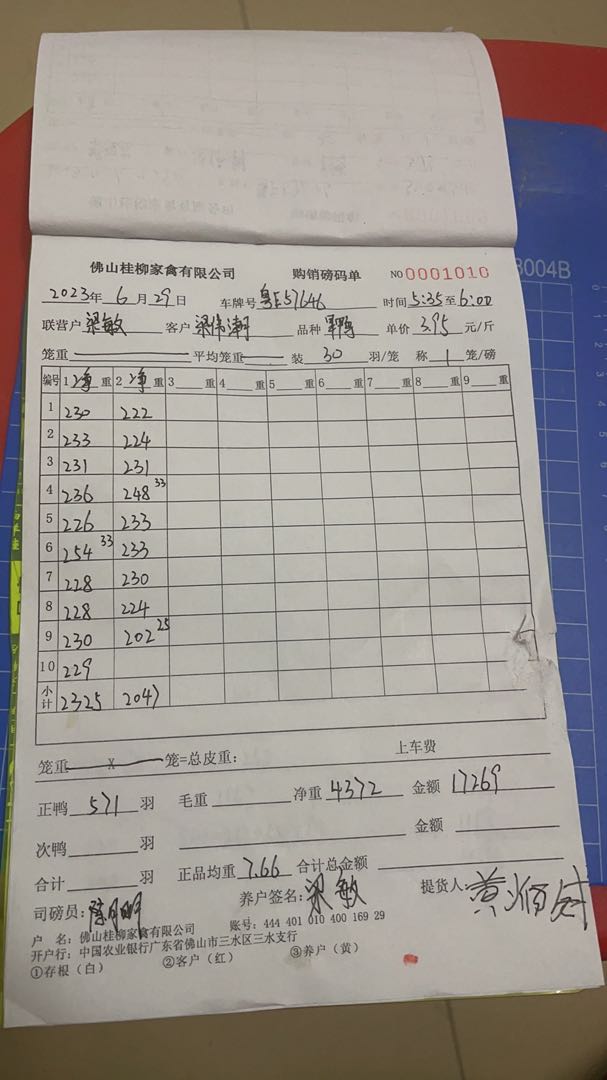 佛山桂柳家禽有限公司 购销磅码单 NO 0001010
2023年 6月 29日 车牌号 粤E57646 时间 5:35 至 6:00
联营户 梁敏 客户 梁伟潮 品种 单价 3.95 元/斤
笼重 平均笼重 装 30 羽/笼 称 1 笼/磅
编号 1 净 重 2 净 重 3 重 4 重 5 重 6 重 7 重 8 重 9 重
1 230 222
2 233 224
3 231 231
4 236 248 33
5 226 233
6 254 33 233
7 228 230
8 228 224
9 230 202 25
10 229
小计 2325 2047
笼重 X 笼=总皮重: 上车费
正鸭 571 羽 毛重 净重 4372 金额 17269
次鸭 羽 金额
合计 羽 正品均重 7.66 合计总金额
司磅员: 养户签名: 梁敏 提货人:
户 名: 佛山桂柳家禽有限公司 账号: 444 401 010 400 169 29
开户行: 中国农业银行广东省佛山市三水区三水支行
①存根（白） ②客户（红） ③养户（黄）
3004B